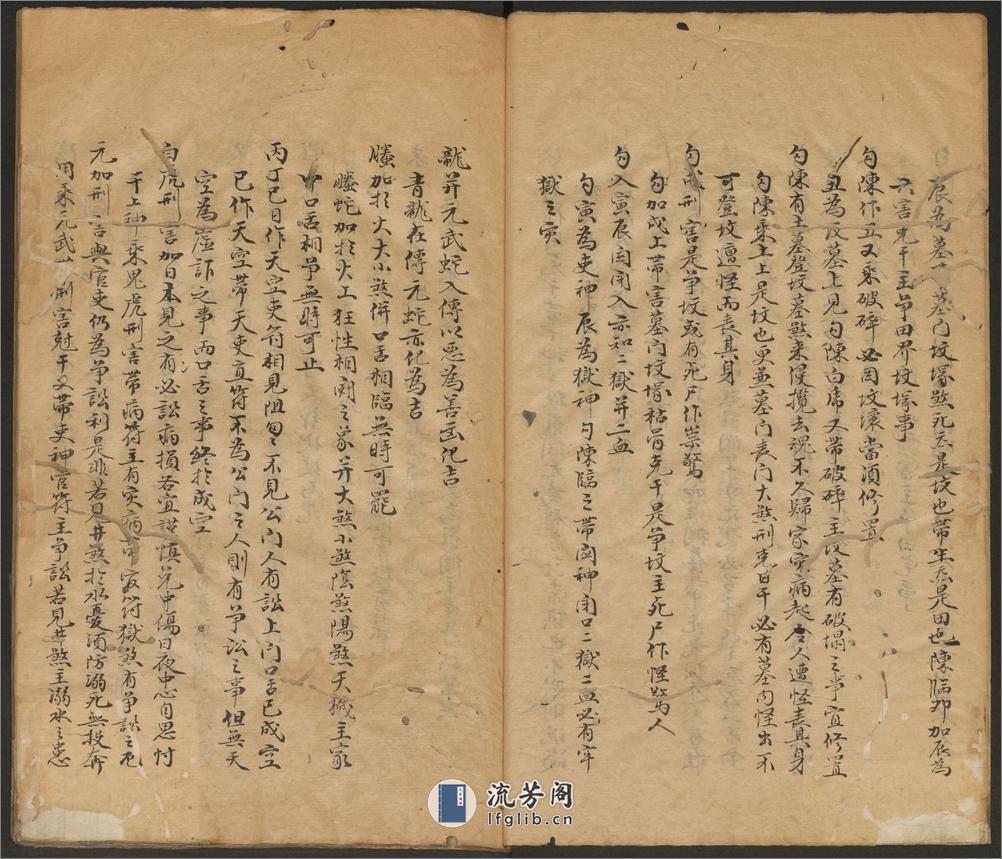 辰為墓墓門坟塚煞死炁是坟也帶生炁是田也陳臨卯加辰為
六害克干主爭田界坟塚事
勾陳作丑又乘破碎必因坟壞當須修置
丑為坟墓上見勾陳白虎又帶破碎主坟墓有破塌之事宜修置
勾陳有土墓登坟墓煞来侵攪去課不久歸家灾病起令人遭怪喪其身
勾陳乘土上是坟也更兼墓門喪門大煞刑克日干必有墓門怪出不
可登坟遭怪而喪其身
勾戌刑害是爭坟或有死尸作祟驚
勾加戌上帶害墓門坟塚枯骨克干是爭坟主死尸作怪驚人
勾入寅辰関閉入亦知二獄并二血
勾寅為吏神辰為獄神勾陳臨之帶関神閉口二獄二血必有牢
獄之灾
龍并元武蛇入傳以惡為善函化吉
青龍在傳元蛇亦化為吉
螣加於火大小煞併口舌相臨無時可罷
螣蛇加於火上狂性相闘之象并大煞小煞陰煞陽煞天機主家
中口舌相爭無時可止
丙丁巳日作天空吏符相見阻匆匆不見公門人有訟上門口舌已成空
巳作天空帶天吏直符不為公門之人則有爭訟之事但無天
空為虛詐之事而口舌之事終於成空
白虎刑害加日本見之有必訟病損若宜謹慎免中傷日夜中心自思忖
干上神乘鬼虎刑害帶病符主有灾病帶官符獄煞有爭訟之厄
元加刑害與官吏仍為爭訟利是非若見井煞於水憂須防溺死無投奔
用乘元武刑害尅干又帶吏神官符主爭訟若見井煞主溺水之患
流芳阁
lfglib.cn